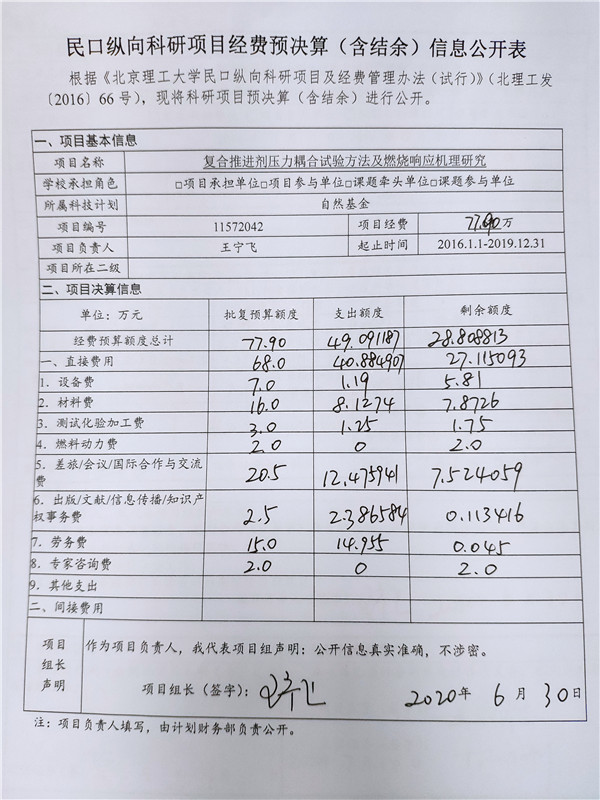 民口纵向科研项目经费预决算（含结余）信息公开表
根据《北京理工大学民口纵向科研项目及经费管理办法（试行）》（北理工发
〔2016〕66 号），现将科研项目预决算（含结余）进行公开。
一、项目基本信息
项目名称 复合推进剂压力耦合试验方法及燃烧响应机理研究
学校承担角色 □项目承担单位□项目参与单位□课题牵头单位□课题参与单位
所属科技计划 自然基金
项目编号 11572042 项目经费 77.90万
项目负责人 王宁飞 起止时间 2016.1.1-2019.12.31
项目所在二级
二、项目决算信息
单位：万元 批复预算额度 支出额度 剩余额度
经费预算额度总计 77.90 49.091187 28.808813
一、直接费用 68.0 40.884907 27.115093
1. 设备费 7.0 1.19 5.81
2. 材料费 16.0 8.1274 7.8726
3. 测试化验加工费 3.0 1.25 1.75
4. 燃料动力费 2.0 0 2.0
5. 差旅/会议/国际合作与交流
费 20.5 12.475941 7.524059
6. 出版/文献/信息传播/知识产
权事务费 2.5 2.386584 0.113416
7. 劳务费 15.0 14.955 0.045
8. 专家咨询费 2.0 0 2.0
9. 其他支出
二、间接费用
项目
组长
声明
作为项目负责人，我代表项目组声明：公开信息真实准确，不涉密。
项目组长（签字）： 2020年 6 月 30日
注：项目负责人填写，由计划财务部负责公开。